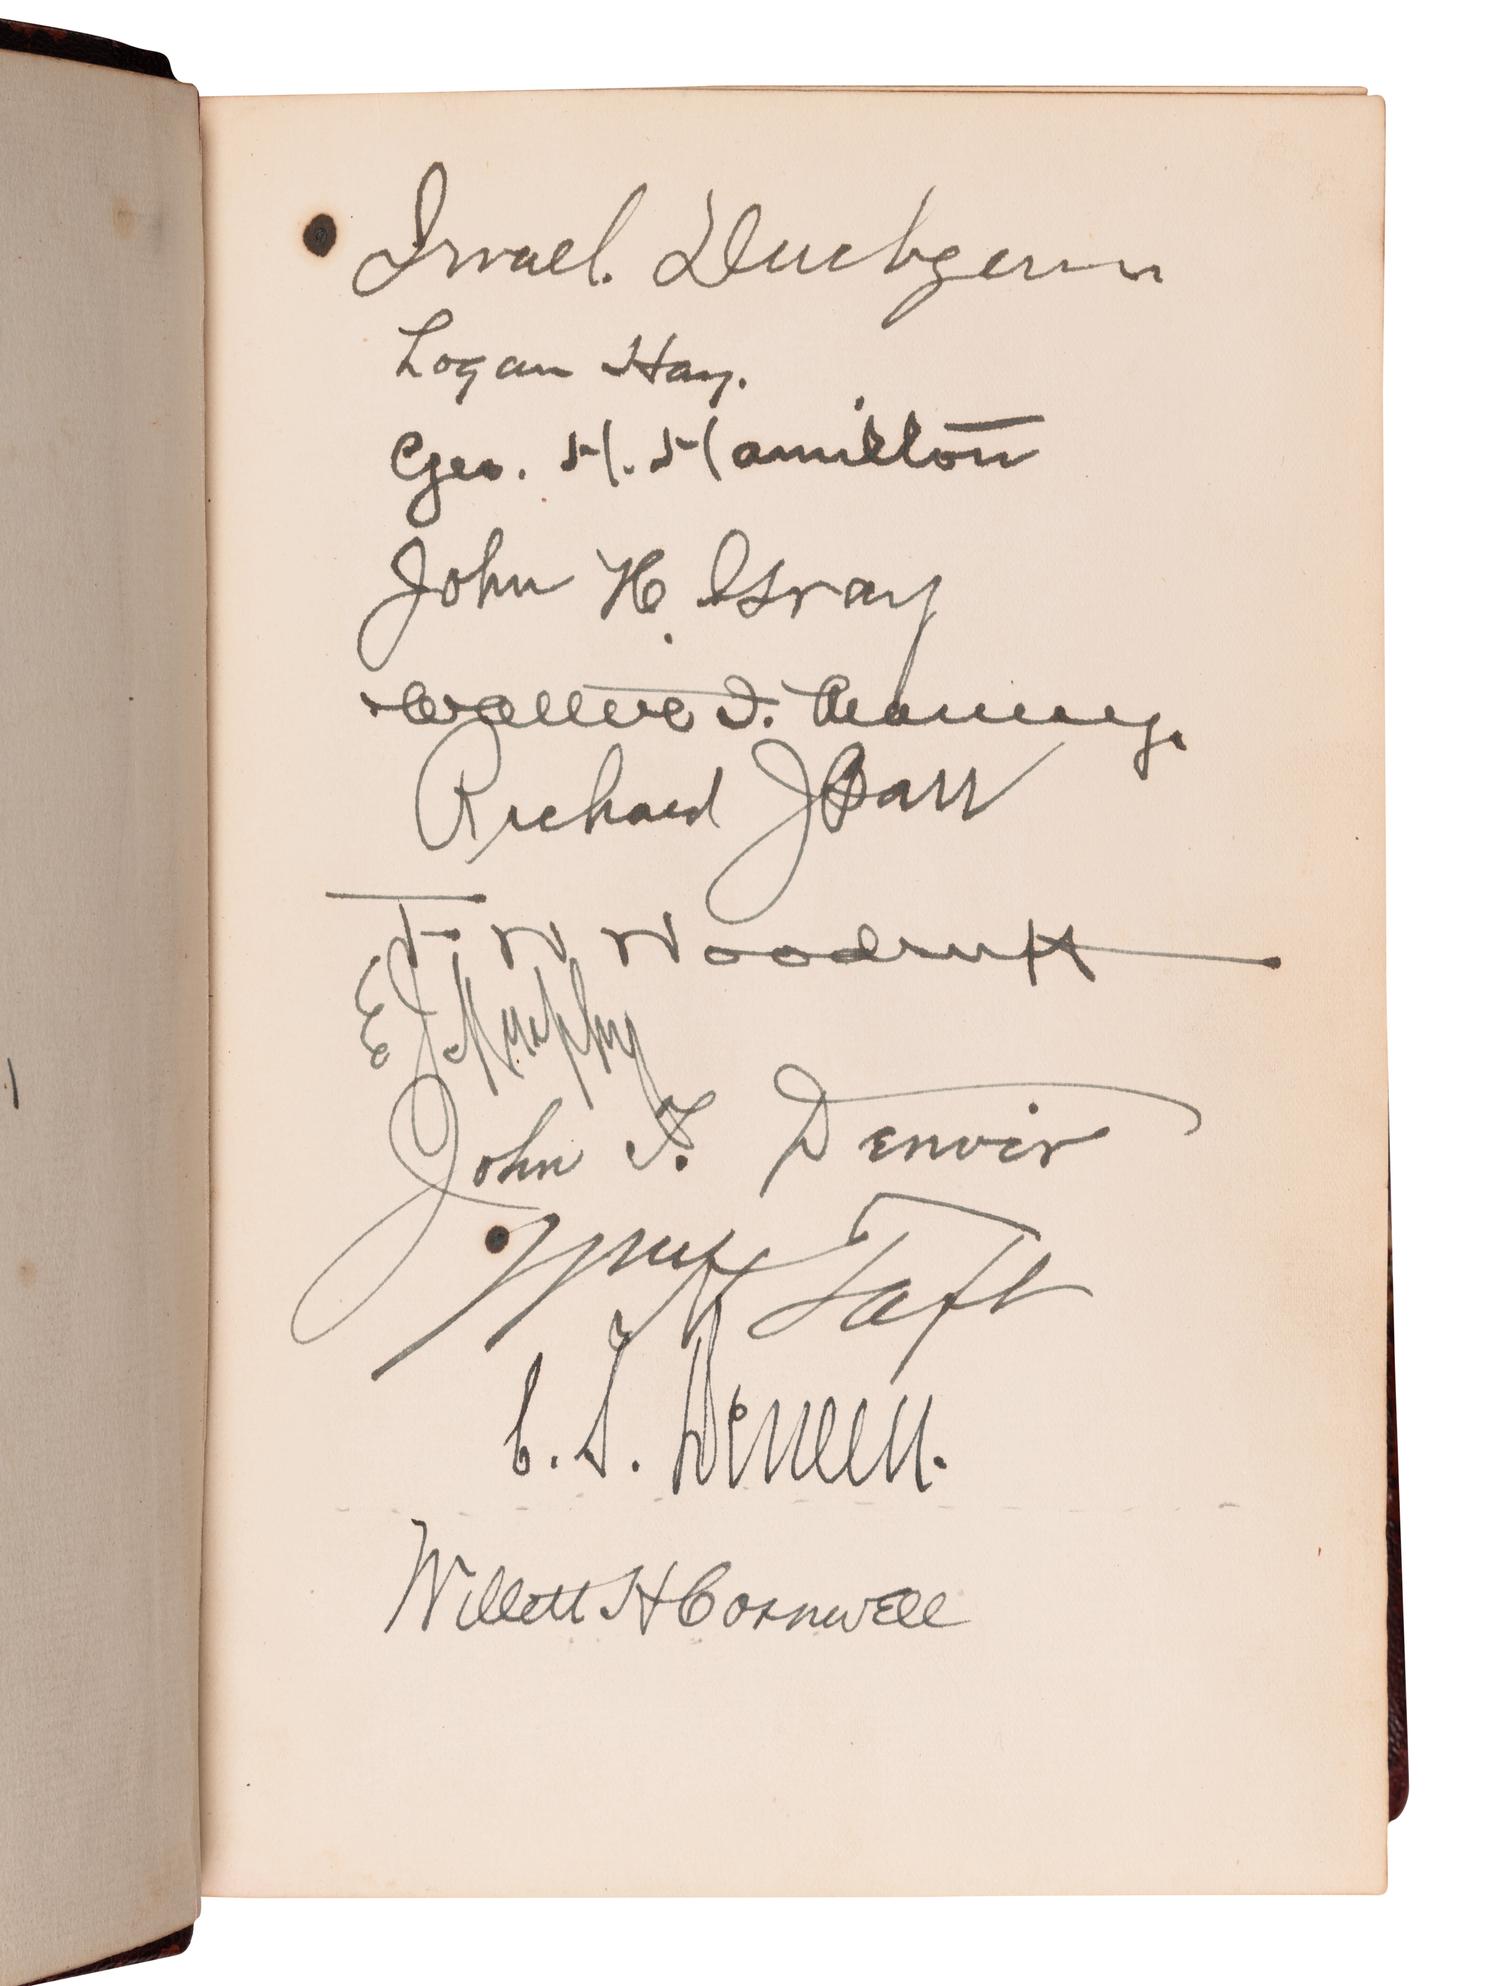 Israel Dudgeon
Logan Hay.
Geo. H. Hamilton
John H Gray
Walter I. Manny.
Richard J Barr
F W Woodruff
E J Murphy
John T. Denvir
Wm H Taft
C. S. Deneen.
Willett H Cornwell